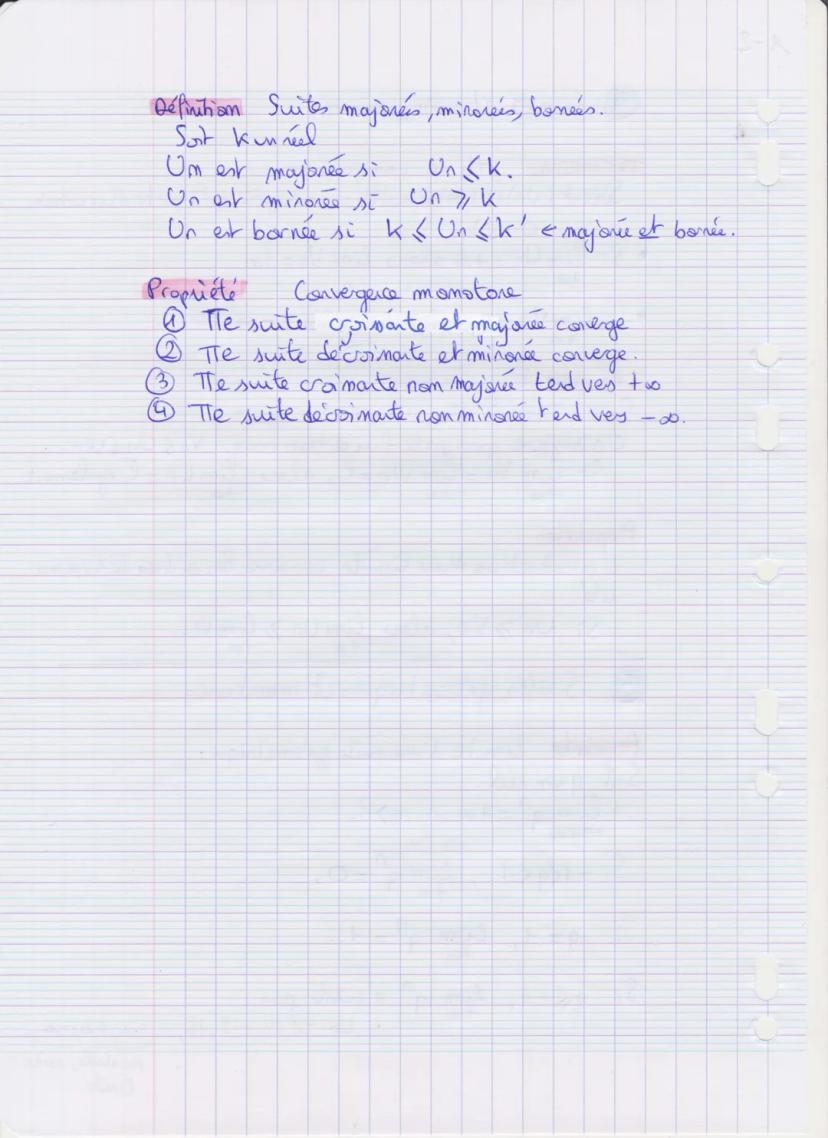 Définition Suites majorées, minorées, bornées.
Soit k un réel
Un est majorée si Un ≤ k.
Un est minorée si Un ≥ k
Un est bornée si k ≤ Un ≤ k' ← majorée et bornée.
Propriété Convergence monotone
① Tte suite croissante et majorée converge
② Tte suite décroissante et minorée converge.
③ Tte suite croissante non majorée tend vers +∞
④ Tte suite décroissante non minorée tend vers -∞.